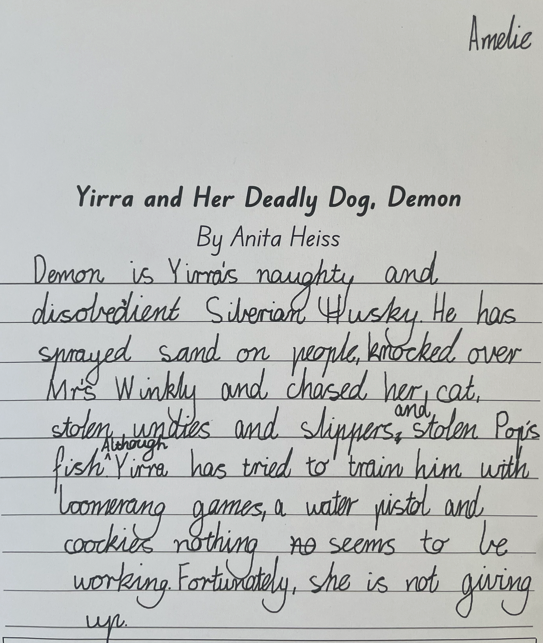 Amelie
Yirra and Her Deadly Dog, Demon
By Anita Heiss
Demon is Yirra's naughty and
disobedient Siberian Husky. He has
sprayed sand on people, knocked over
Mrs Winkly and chased her cat,
stolen undies and slippers, and stolen Pop's
fish Although Yirra has tried to train him with
boomerang games, a water pistol and
coockies nothing no seems to be
working. Fortunately, she is not giving
up.